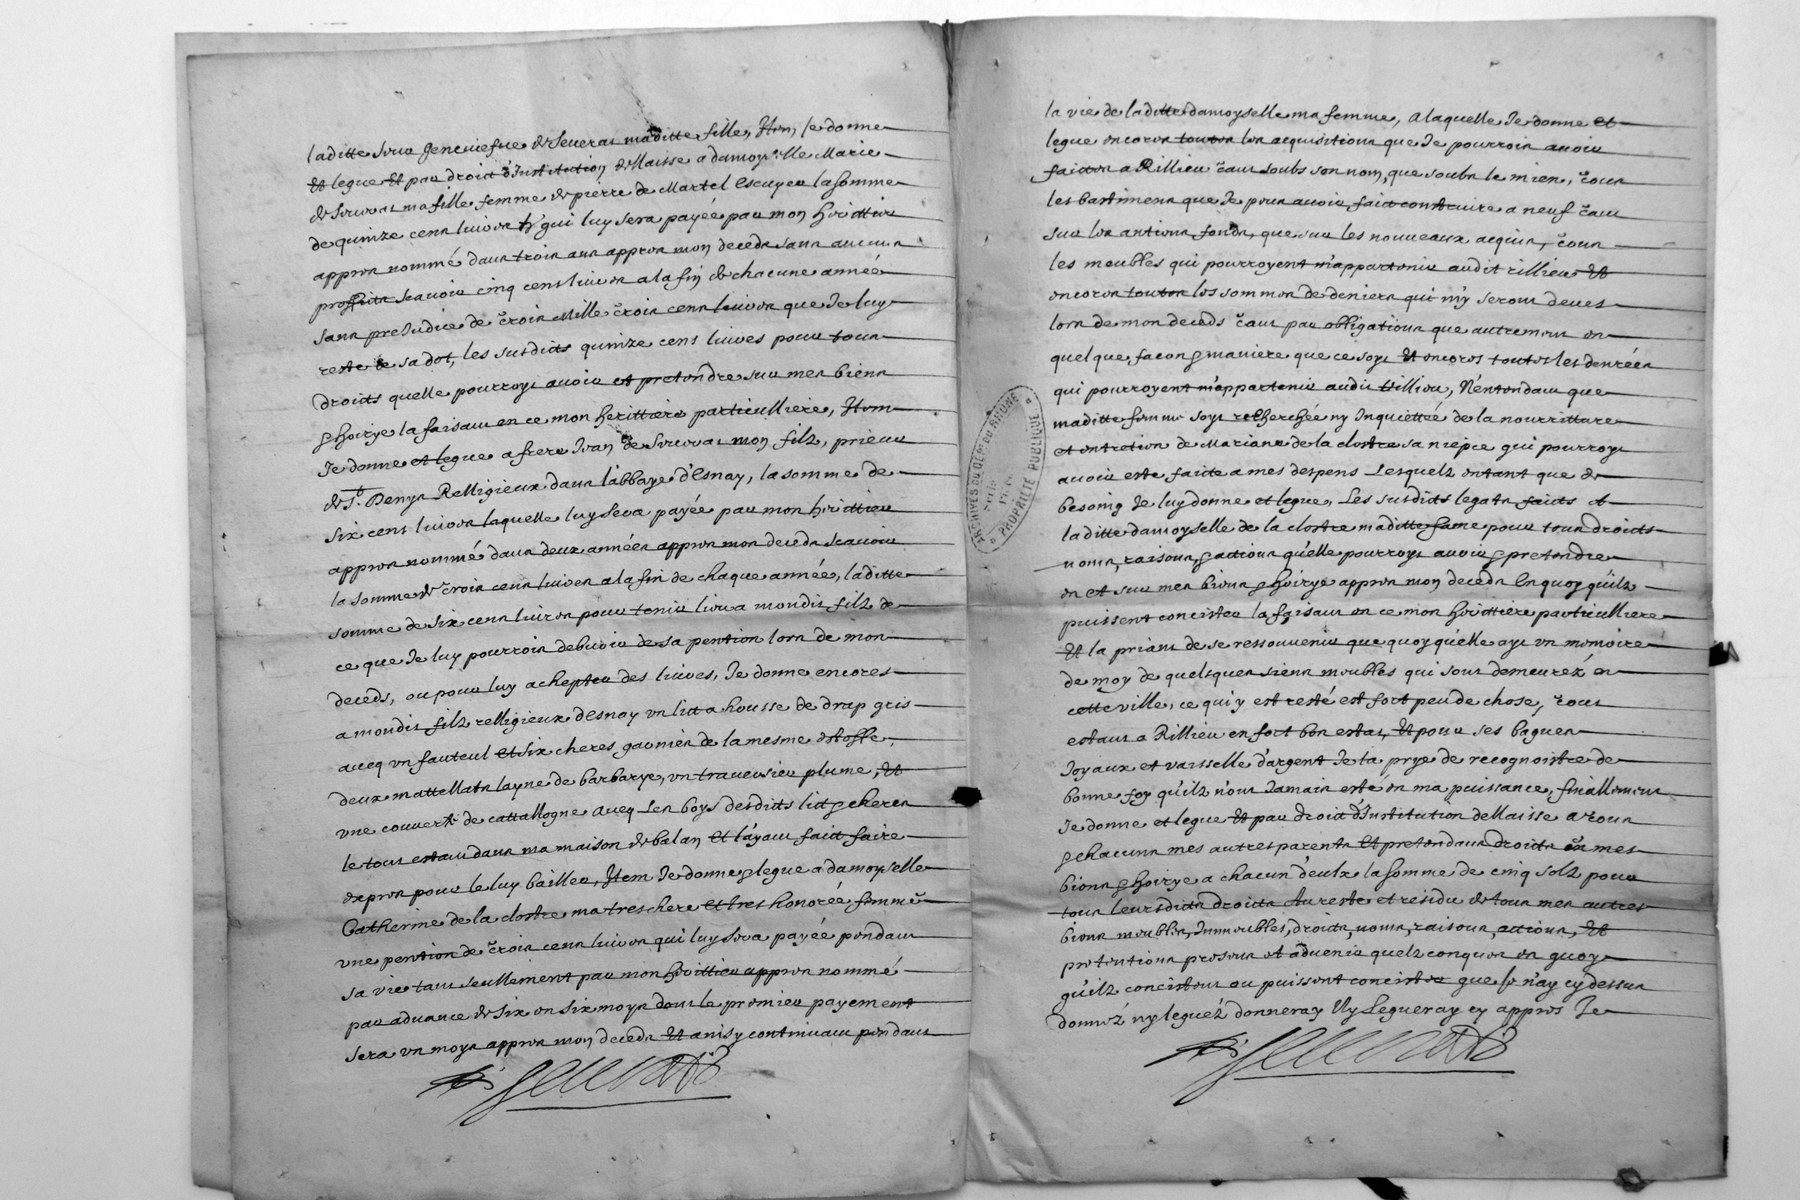 laditte sœur Geneviefve de Severat maditte fille, Item, Je donne
et legue et par droict d'Institution delaisse a damoyselle Marie
de Severat ma fille femme de pierre de Martel Escuyer la somme
de quinze cens livres tz qui luy sera payée par mon heritier
appres nommé dans trois ans appres mon deceds sans aucuns
proffits scavoir cinq cens livres a la fin de chacune année
sans preJudice de trois Mille trois cens livres que Je luy
reste de sa dot, les susdits quinze cens livres pour tous
droits quelle pourroyt avoir et pretendre sur mes biens
& hoirye la faisant en ce mon heritiere particulliere, Item
Je donne et legue a frere Jean de Severat mon filz, prieur
de St. Denys Relligieux dans l'abbaye d'Esnay, la somme de
six cens livres laquelle luy sera payée par mon heritier
appres nommé dans deux années appres mon deceds scavoir
la somme de trois cens livres a la fin de chaque année, laditte
somme de six cens livres pour tenir lieu a mondit filz de
ce que Je luy pourrois debvoir de sa pention lors de mon
deceds, ou pour luy achepter des livres, Je donne encores
a mondit filz relligieux d'Esnay un lict a housse de drap gris
avecq un fauteul et six cheres garnies de la mesme estoffe,
deux mattellats layne de barbarye, un traversier plume, et
une couverte de cattallogne avecq Les boys desdits lict & cheres
le tout estant dans ma maison de balan et l'ayant faict faire
expres pour le luy bailler, Item Je donne & legue a damoyselle
Catherine de la clostre ma tres chere et tres honorée femme
une pention de trois cens livres qui luy sera payée pendant
sa vie tant seullement par mon heritier appres nommé
par advance de six en six moys dont le premier payement
sera un moys appres mon deceds et ainsy continuant pendant
Severat
la vie de laditte damoyselle ma femme, a laquelle Je donne et
legue encores touttes les acquisitions que Je pourrois avoir
faictes a Rillieu tant soubs son nom, que soubs le mien, tous
les bastimens que Je peux avoir faict construire a neuf tant
sur les antiens fonds, que sur les nouveaux acquis, tous
les meubles qui pourroyent m'appartenir audit rillieu et
encores touttes les sommes de deniers qui m'y seront deues
lors de mon deceds tant par obligations que autrement en
quelque facon & maniere que ce soyt et encores touttes les denrées
qui pourroyent m'appartenir audit Rillieu, N'entendant que
maditte femme soyt recherchée ny Inquiettée de la nourritture
et entretien de Mariane de la clostre sa niepce qui pourroyt
avoir esté faitte a mes despens Lesquelz entant que de
besoing Je luy donne et legue, Les susdits legats faicts a
laditte damoyselle de la clostre maditte fame pour tous droits
noms, raisons & actions qu'elle pourroyt avoir & pretendre
en et sur mes biens & hoirye appres mon deceds En quoy qu'ilz
puissent concister la faisant en ce mon heritiere particulliere
et la priant de se ressouvenir que quoy qu'elle ayt un memoire
de moy de quelques siens meubles qui sont demeurez en
cette ville, ce qui y est resté est fort peu de chose, tout
estant a Rillieu en fort bon estat, et pour ses bagues
Joyaux et vaisselle d'argent Je la prye de recognoistre de
bonne foy qu'ilz n'ont Jamais esté en ma puissance, finallement
Je donne et legue et par droict d'Institution delaisse a tous
& chacuns mes autres parents et pretendans droits en mes
biens & hoirye a chacun d'eulx la somme de cinq solz pour
tous leursdits droits Au reste et residu de tous mes autres
biens meubles, Immeubles, droits, noms, raisons, actions, et
pretentions presens et advenir quelz conques en quoy
qu'ilz concistent ou puissent concister que Je n'ay cy dessus
donnéz ny leguéz donneray Ny Legueray cy appres Je
Severat
ARCHIVES DU DEPT DU RHONE
PROPRIÉTÉ PUBLIQUE